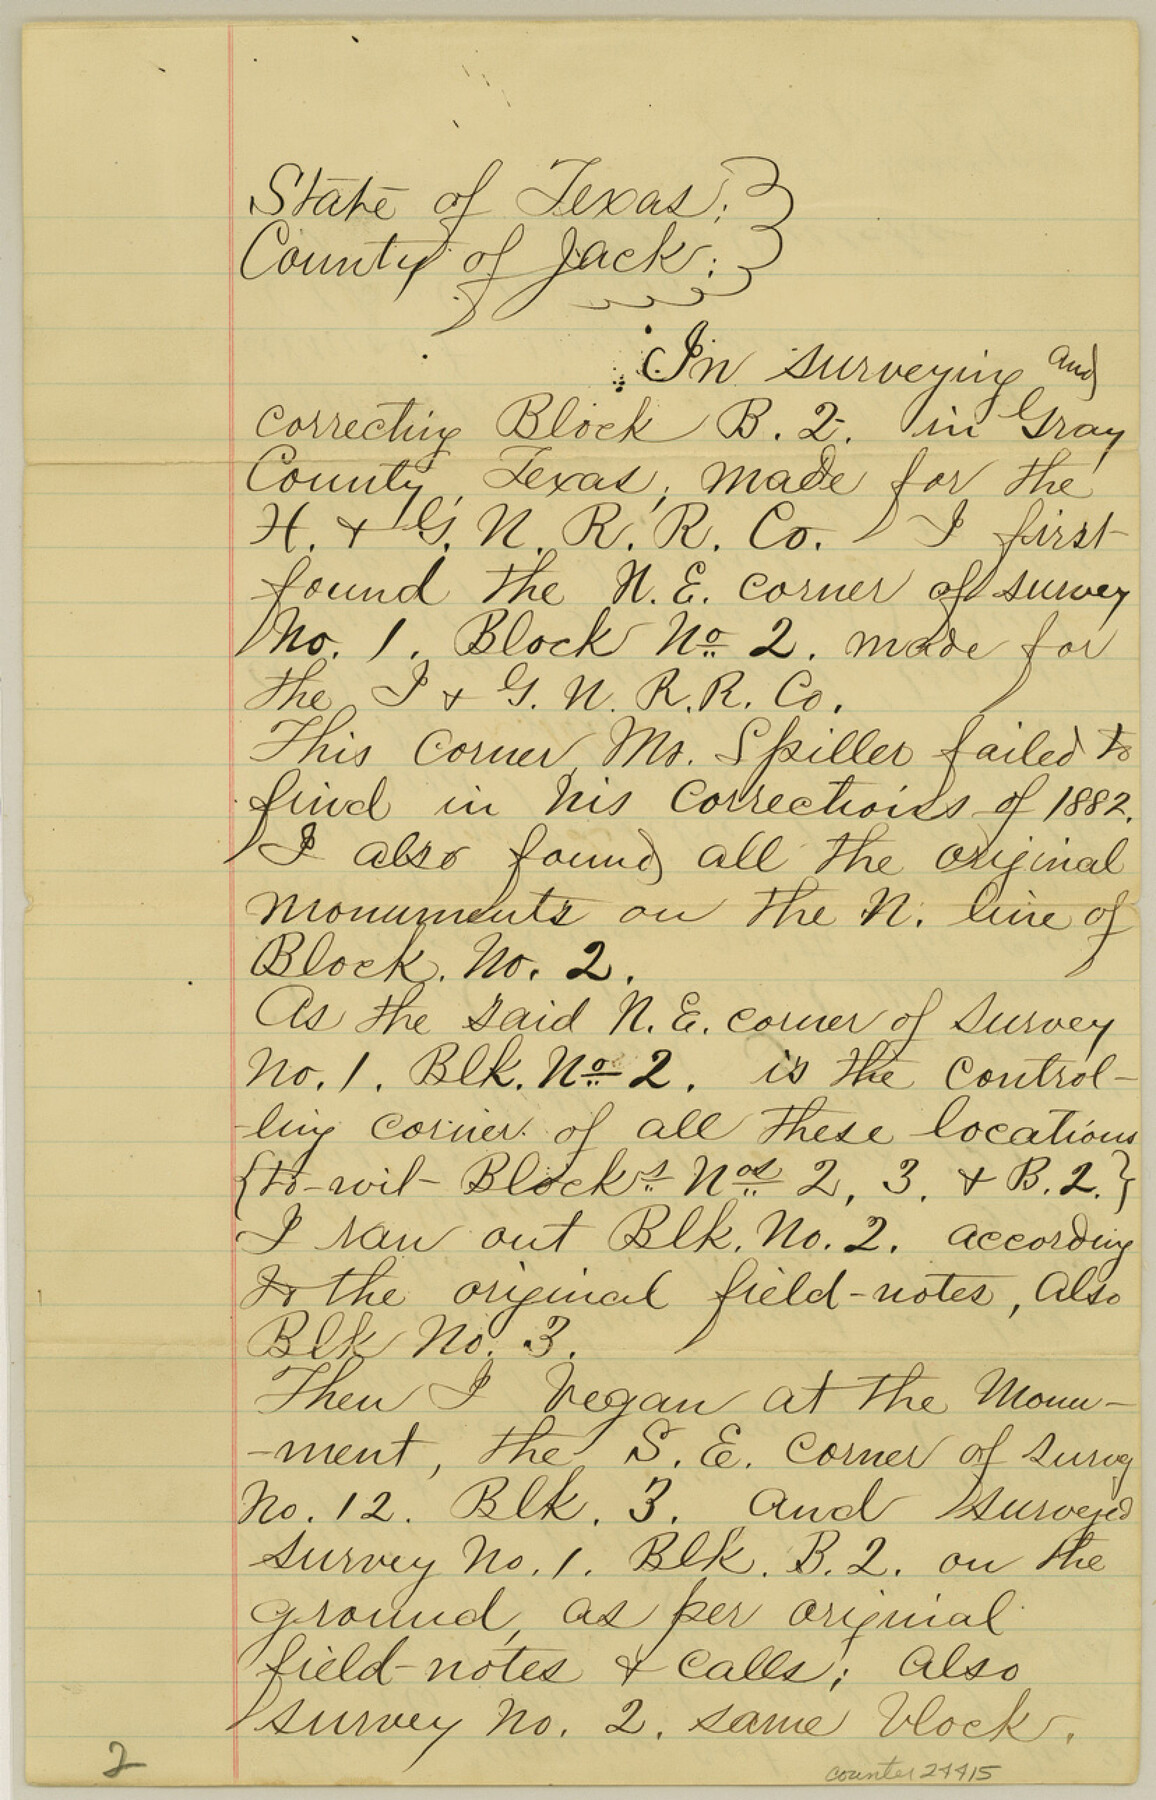 State of Texas;
County of Jack:
In surveying and
correcting Block B. 2. in Gray
County, Texas, made for the
H. & G. N. R. R. Co. I first
found the N. E. corner of survey
No. 1. Block No. 2. made for
the I & G. N. R. R. Co.
This corner Mr. Spiller failed to
find in his corrections of 1882.
I also found all the original
monuments on the N. line of
Block. No. 2.
As the said N. E. corner of survey
No. 1. Blk. No. 2. is the control-
-ling corner of all these locations
{to-wit- Blocks Nos 2, 3. & B. 2.}
I ran out Blk. No. 2. according
to the original field-notes, also
Blk No. 3.
Then I began at the Monu-
-ment, the S. E. corner of survey
No. 12. Blk. 3. and surveyed
survey No. 1. Blk. B. 2. on the
ground, as per original
field-notes & calls; also
survey No. 2. same block.
2
counter 24415